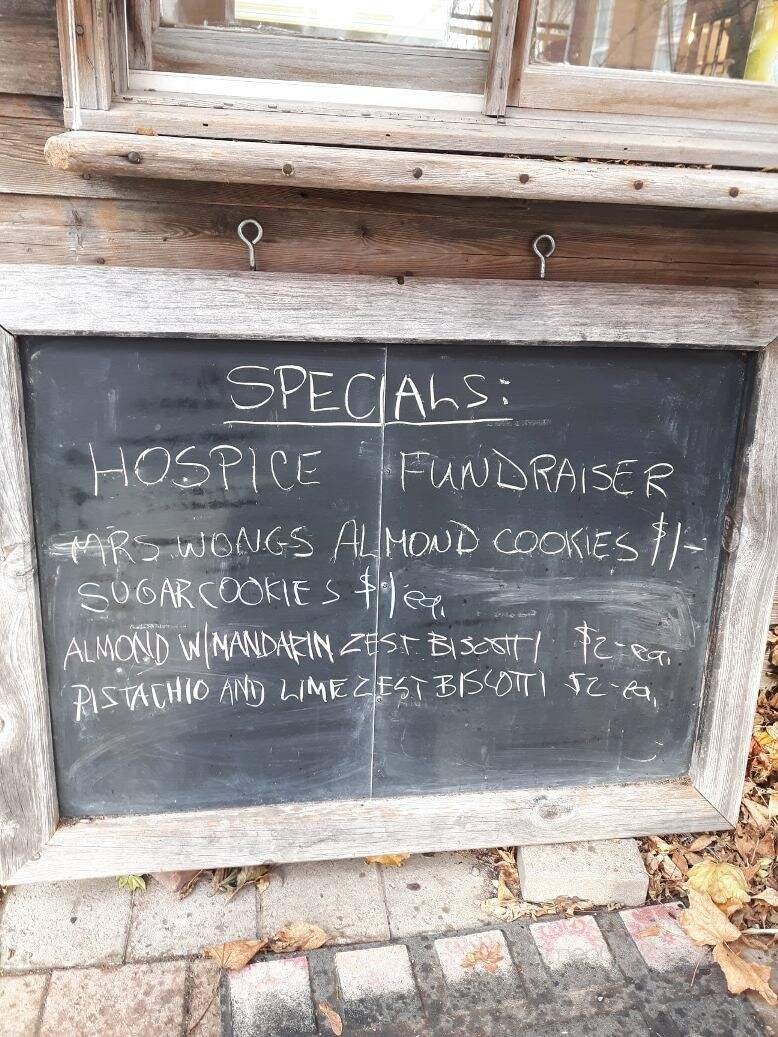 SPECIALS:
HOSPICE FUNDRAISER
MRS. WONGS ALMOND COOKIES $1-
SUGAR COOKIES $1 ea.
ALMOND W/MANDARIN ZEST BISCOTTI $2-ea.
PISTACHIO AND LIME ZEST BISCOTTI $2-ea.